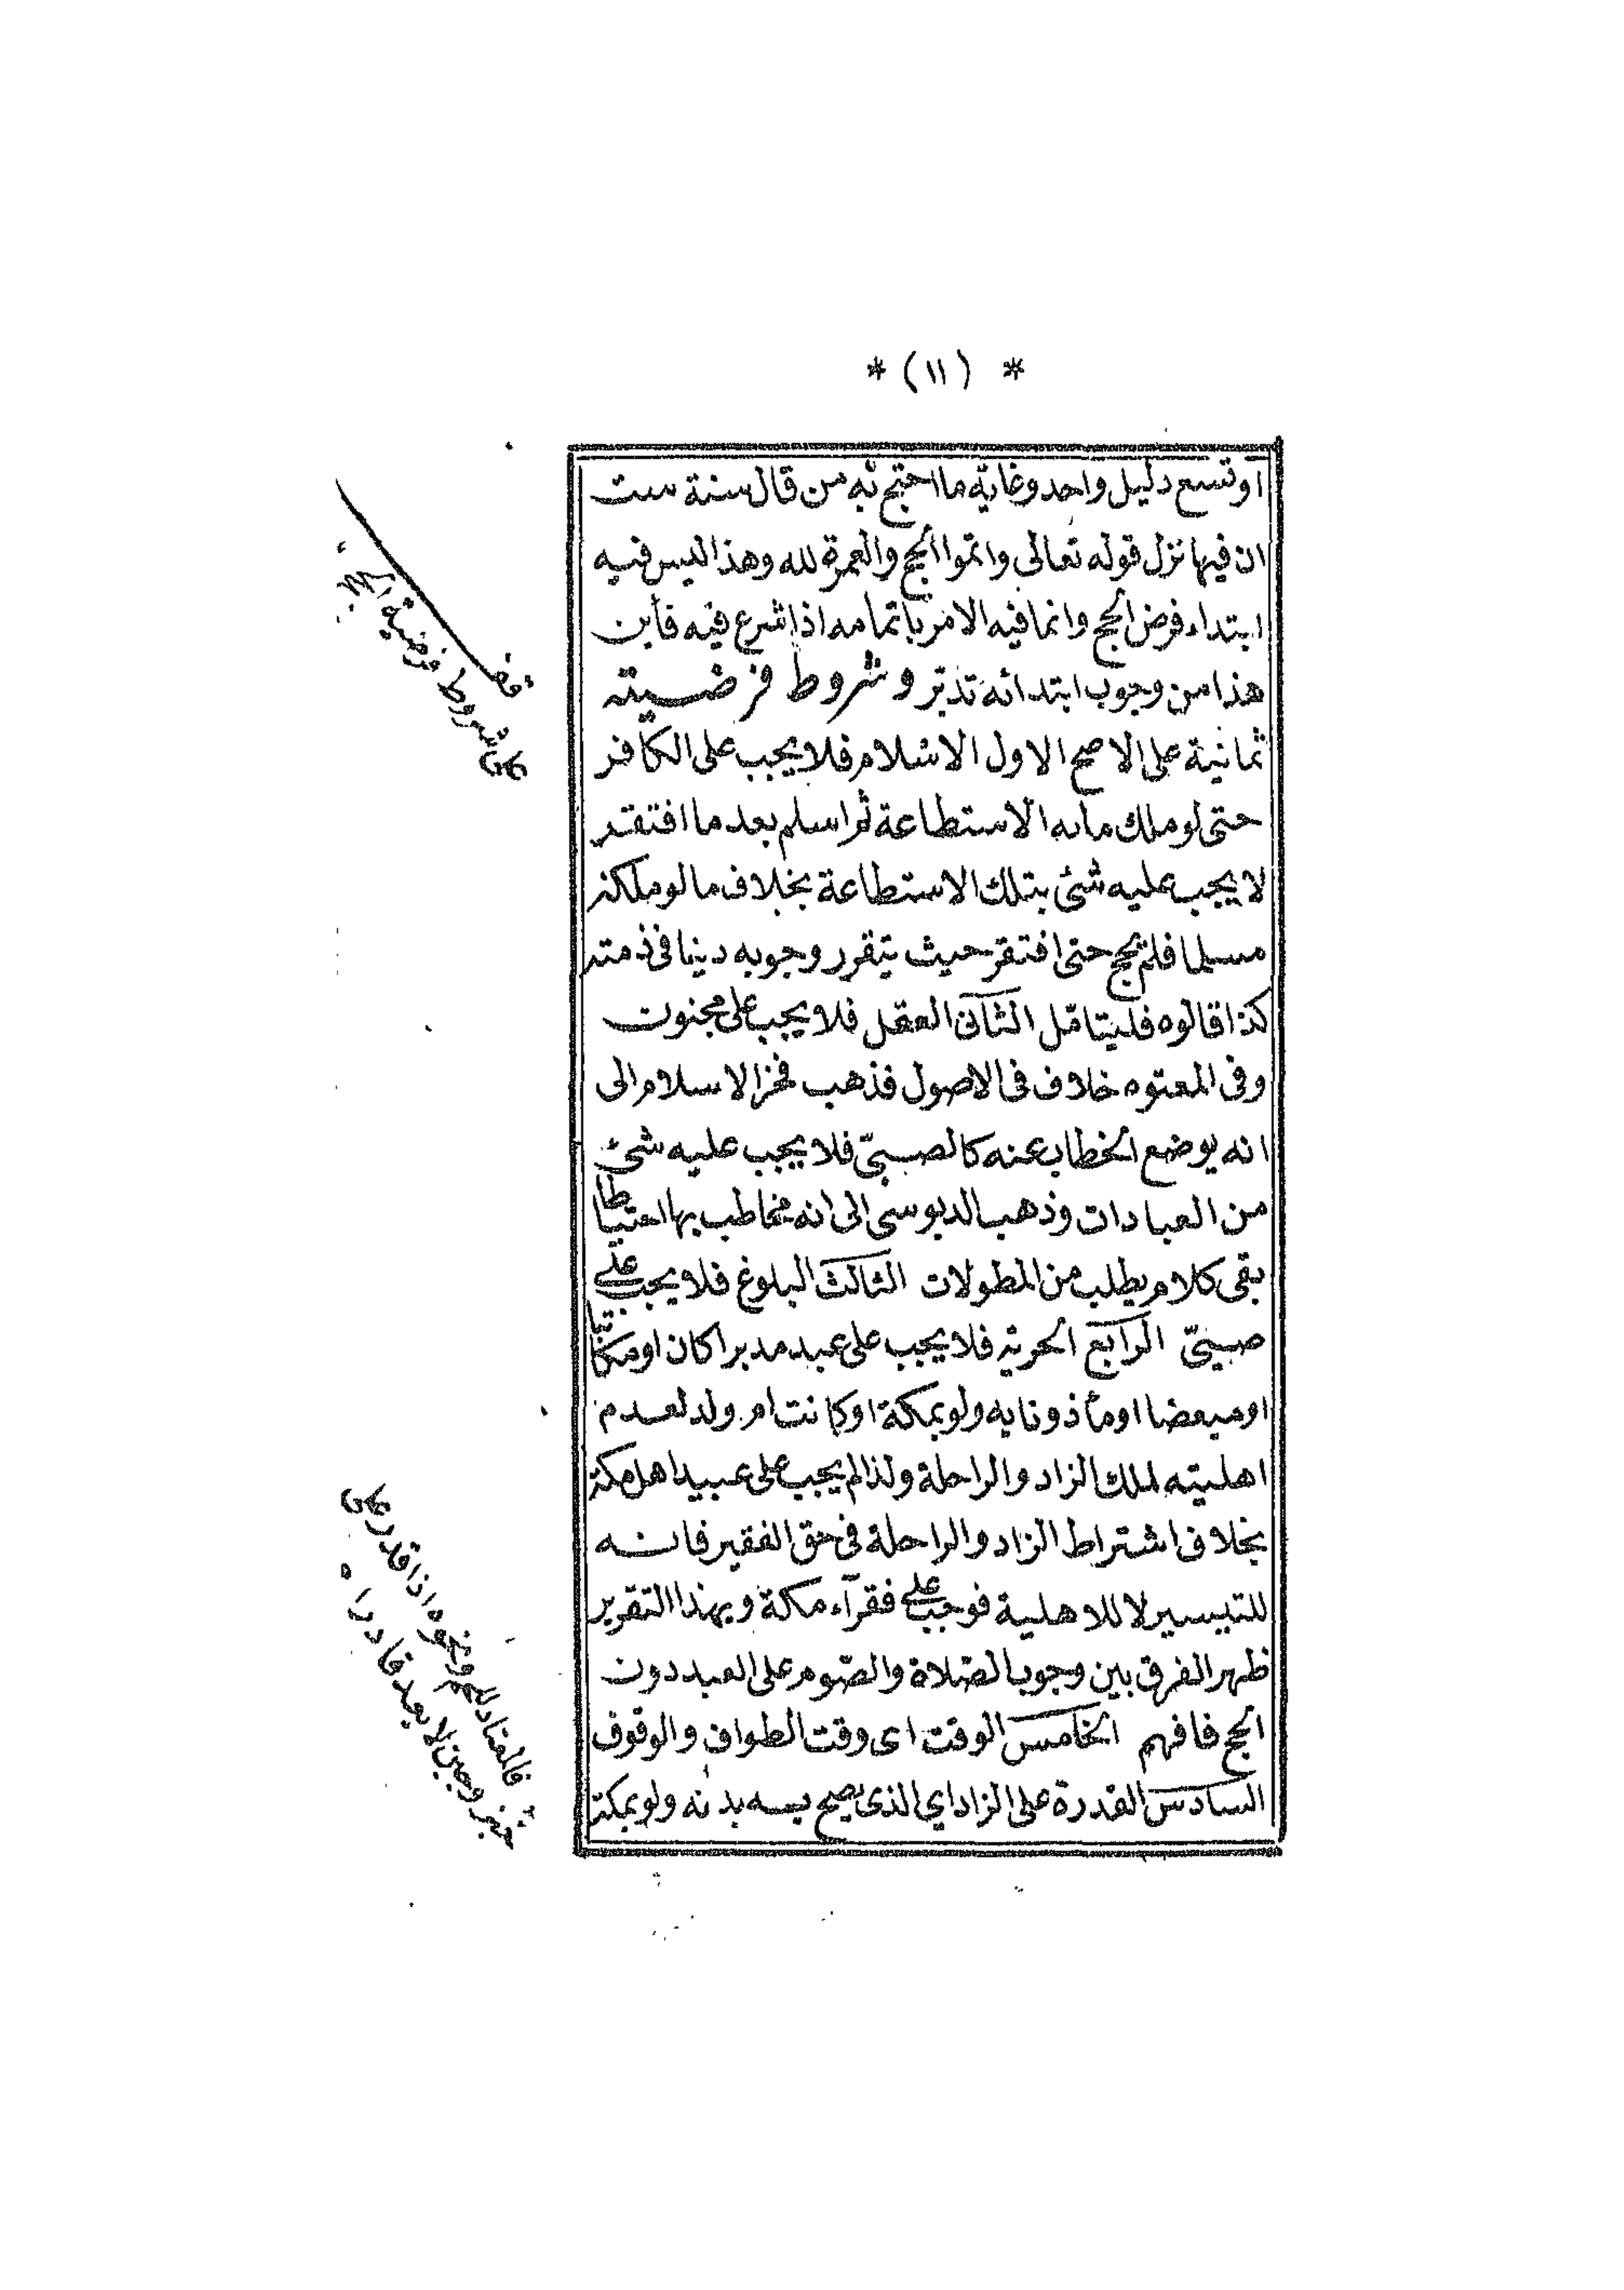 * (١١) *
او تسع دليل واحد وغاية ما احتج به من قال سنة ست
ان فيها نزل قوله تعالى واتموا الحج والعمرة لله وهذا ليس فيه
ابتداء فرض الحج وانما فيه الامر باتمامه اذا شرع فيه فأين
هذا من وجوب ابتدائه تدبّر وشروط فرضيته
ثمانية على الاصح الاول الاسلام فلا يجب على الكافر
حتى لو ملك ما به الاستطاعة ثم اسلم بعد ما افتقر
لا يجب عليه شئ بتلك الاستطاعة بخلاف ما لو ملكه
مسلما فلم يحج حتى افتقر حيث يتقرر وجوبه دينا فى ذمته
كذا قالوه فليتامّل الثانى العقل فلا يجب على مجنون
وفى المعتوه خلاف فى الاصول فذهب فخر الاسلام الى
انه يوضع الخطاب عنه كالصبىّ فلا يجب عليه شئ
من العبادات وذهب الدبوسى الى انه مخاطب بها احتياطا
بقى كلام يطلب من المطولات الثالث البلوغ فلا يجب على
صبىّ الرابع الحرية فلا يجب على عبد مدبرا كان او مكاتبا
او مبعضا او مأذونا به ولو بمكة او كانت ام ولد لعدم
اهليته لملك الزاد والراحلة ولذا لم يجب على عبيد اهل مكة
بخلاف اشتراط الزاد والراحلة فى حق الفقير فانه
للتيسير لا للاهلية فوجب على فقرآء مكة وبهذا التقرير
ظهر الفرق بين وجوب الصّلاة والصّوم على العبد دون
الحج فافهم الخامس الوقت اى وقت الطواف والوقوف
السادس القدرة على الزاد اي الذى يصح به بدنه ولو بمكة
على شروط فرضية الحج
فالمعتاد للحم ونحوه اذا قدر على
خبز وجبن لا يعد قادرا ه